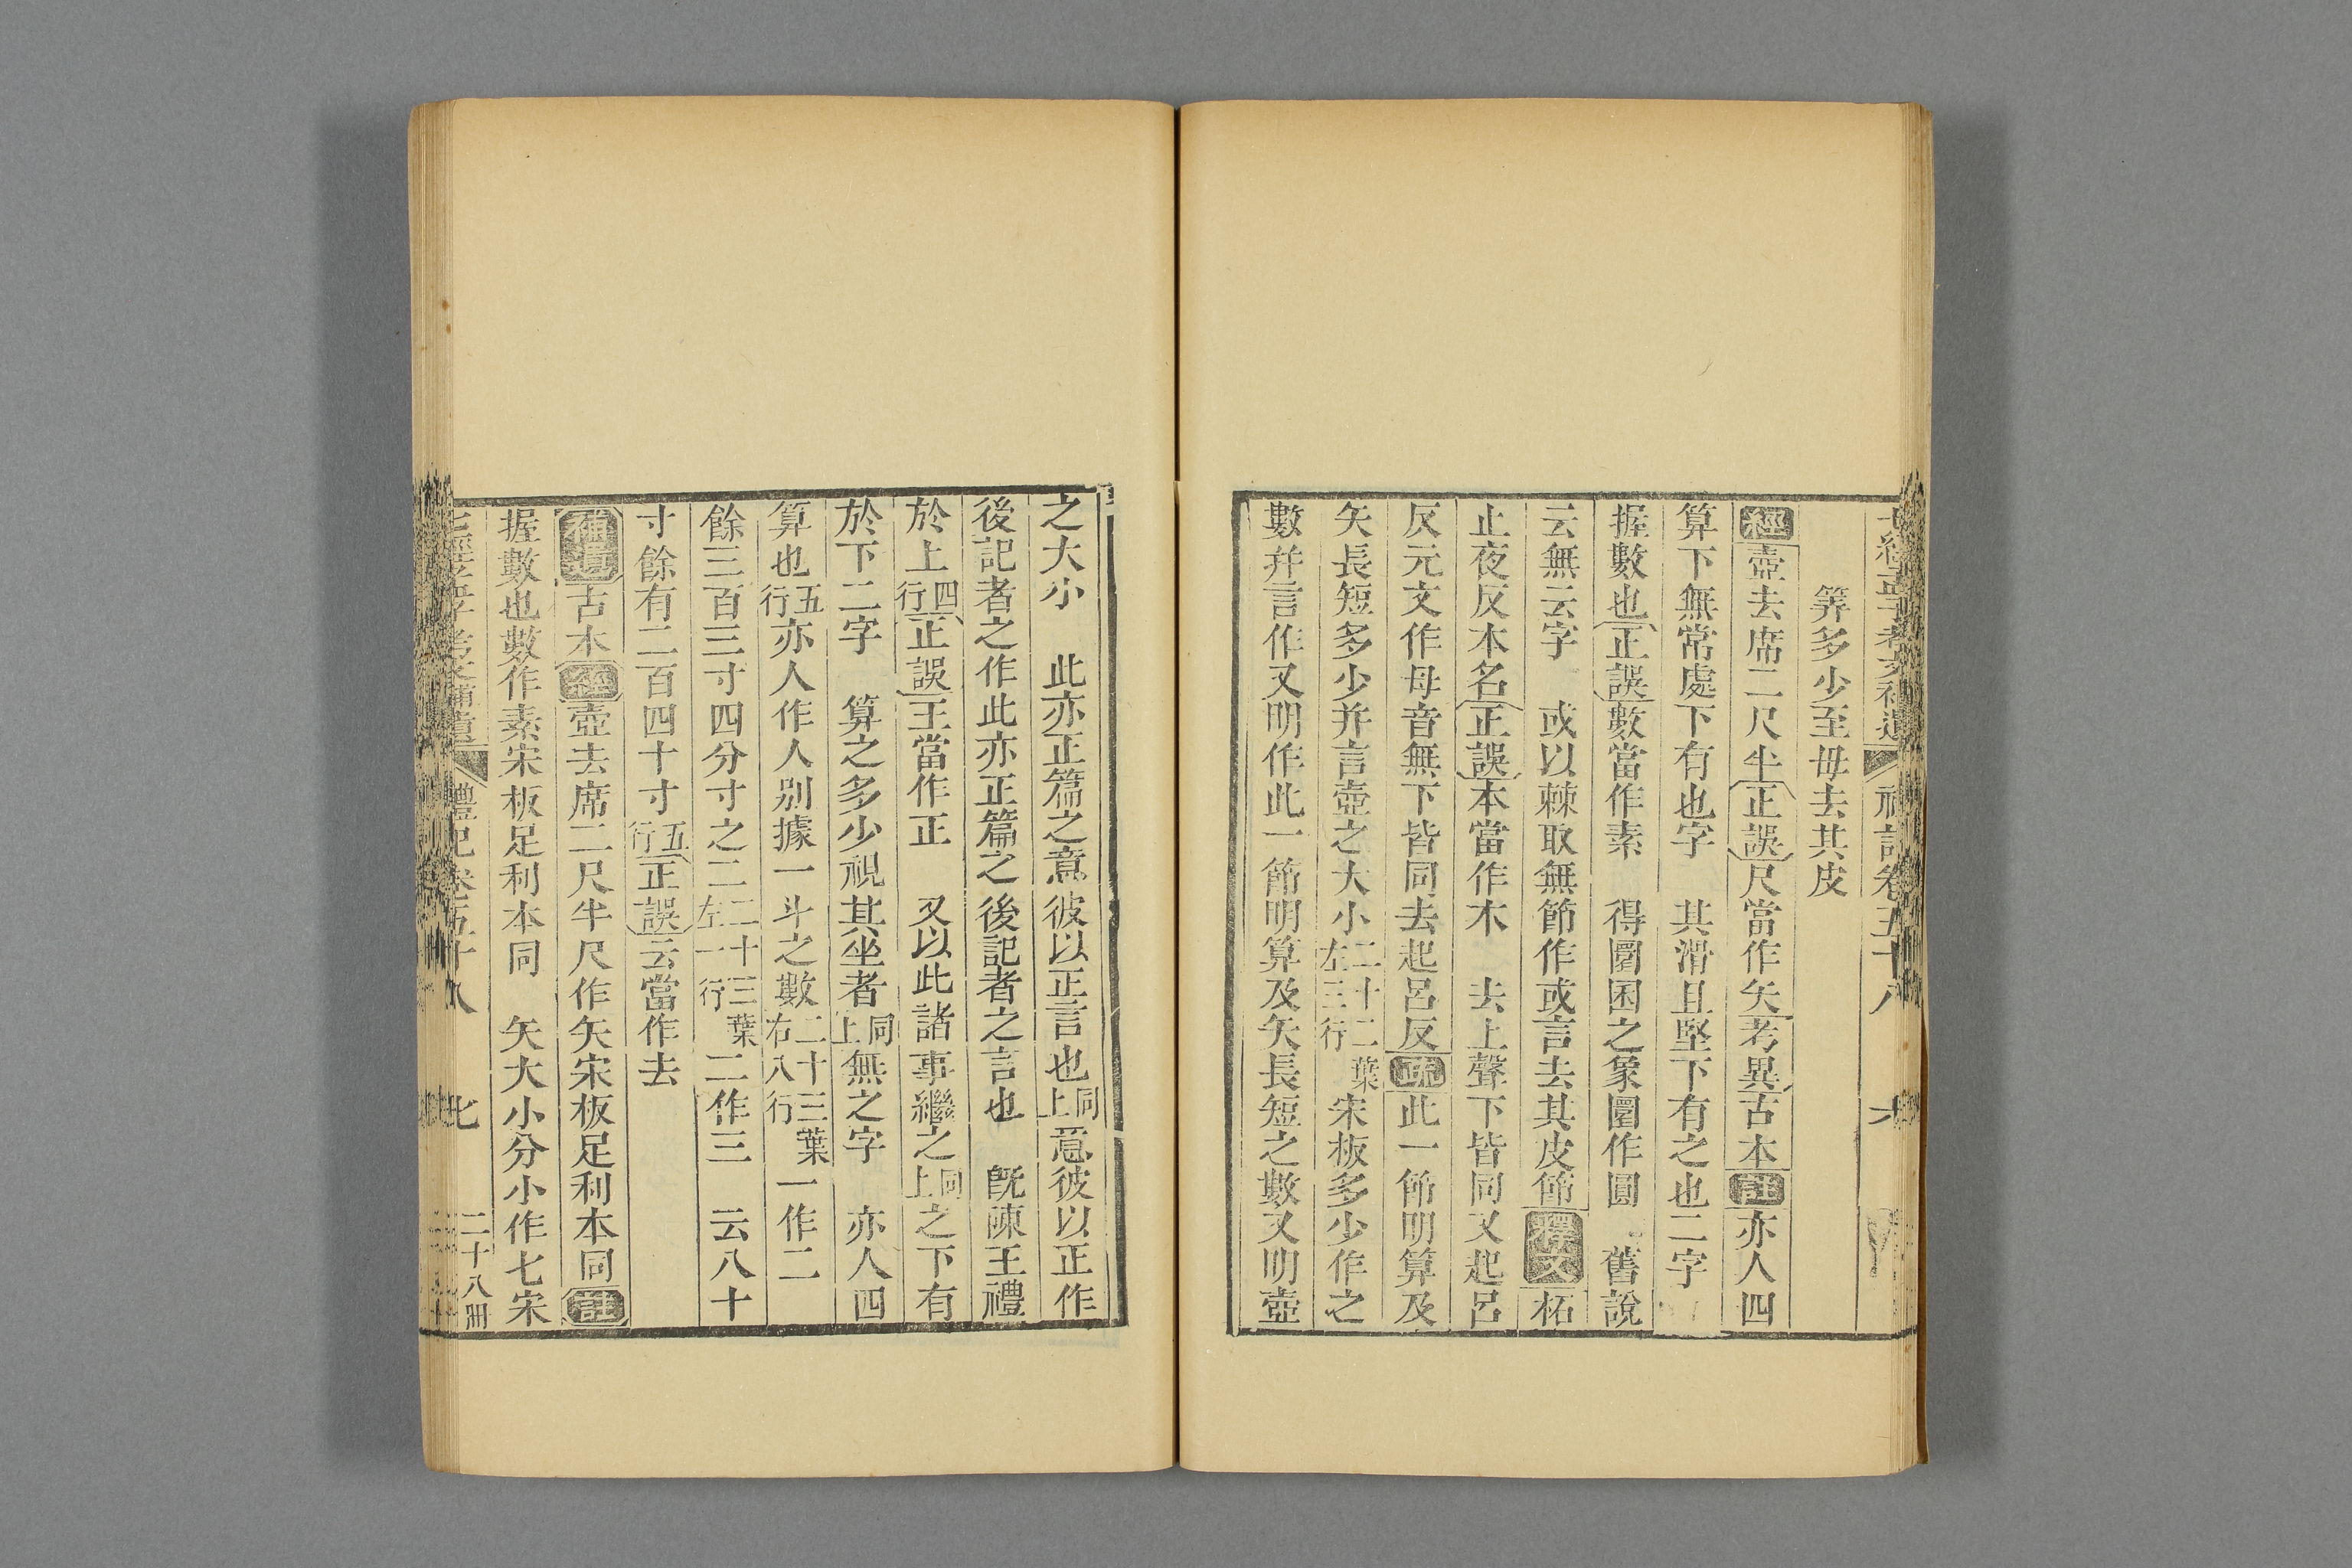 七經孟子考文補遺 禮記卷五十八 六
筭多少至毋去其皮
經壺去席二尺半正誤尺當作矢考異古本註亦人四
算下無常處下有也字 其滑且堅下有之也二字
握數也正誤數當作素 得圜囷之象圜作圓 舊說
云無云字 或以棘取無節作或言去其皮節釋文柘
止夜反本名正誤本當作木 去上聲下皆同又起呂
反元文作毋音無下皆同去起呂反疏此一節明算及
矢長短多少并言壺之大小二十二葉左三行宋板多少作之
數并言作又明作此一節明算及矢長短之數又明壺
之大小 此亦正篇之意彼以正言也同上意彼以正作
後記者之作此亦正篇之後記者之言也 旣陳王禮
於上四行正誤王當作正 又以此諸事繼之同上之下有
於下二字 算之多少視其坐者同上無之字 亦人四
算也五行亦人作人別據一斗之數二十三葉右八行一作二
餘三百三寸四分寸之二二十三葉左一行二作三 云八十
寸餘有二百四十寸五行正誤云當作去
補遺古本經壺去席二尺半尺作矢宋板足利本同註
握數也數作素宋板足利本同 矢大小分小作七宋
七經孟子考文補遺 禮記卷五十八 七 二十八冊